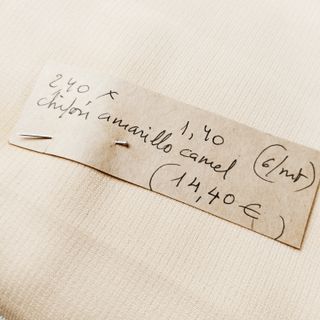 2,40 x 1,40
chifón amarillo camel (6/mt)
(14,40 €)